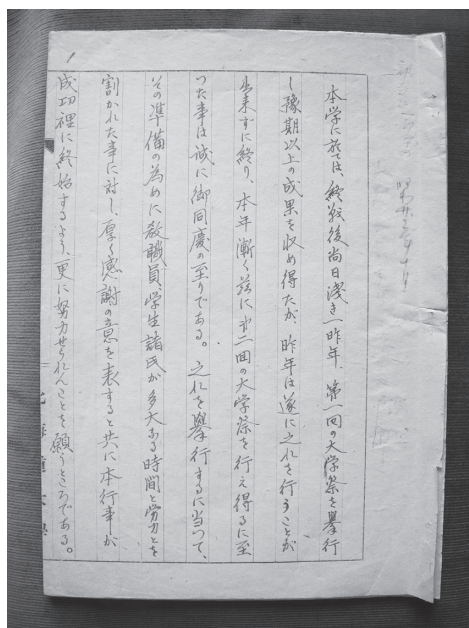 本学に於ては、終戦後尚日浅き一昨年、第一回の大学祭を擧行
し豫期以上の成果を収め得たが、昨年は遂に之れを行うことが
出来ずに終り、本年漸く茲に第二回の大学祭を行え得るに至
つた事は誠に御同慶の至りである。之れを擧行するに当つて、
その準備の為めに教職員、学生諸氏が多大なる時間と労力とを
割かれた事に対し、厚く感謝の意を表すると共に本行事が
成功裡に終始するよう、更に努力せられんことを願うところである。
北海道大學